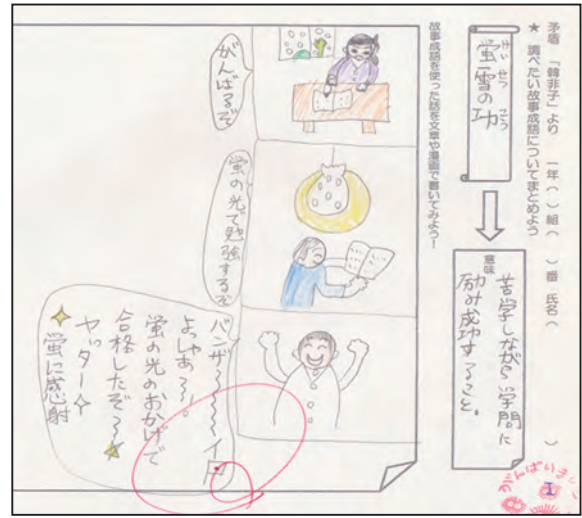 矛盾 「韓非子」より 一年( )組( )番 氏名( )
★ 調べたい故事成語についてまとめよう
けい せつ こう
蛍雪の功
意味
苦学しながら学問に
励み成功すること。
故事成語を使った話を文章や漫画で書いてみよう!
がんばるぞ
蛍の光で勉強するぞ
バンザ〜〜〜〜イ
よっしゃあ〜〜!。
蛍の光のおかげで
合格したぞ〜〜
ヤッター☆
蛍に感射
がんばりま